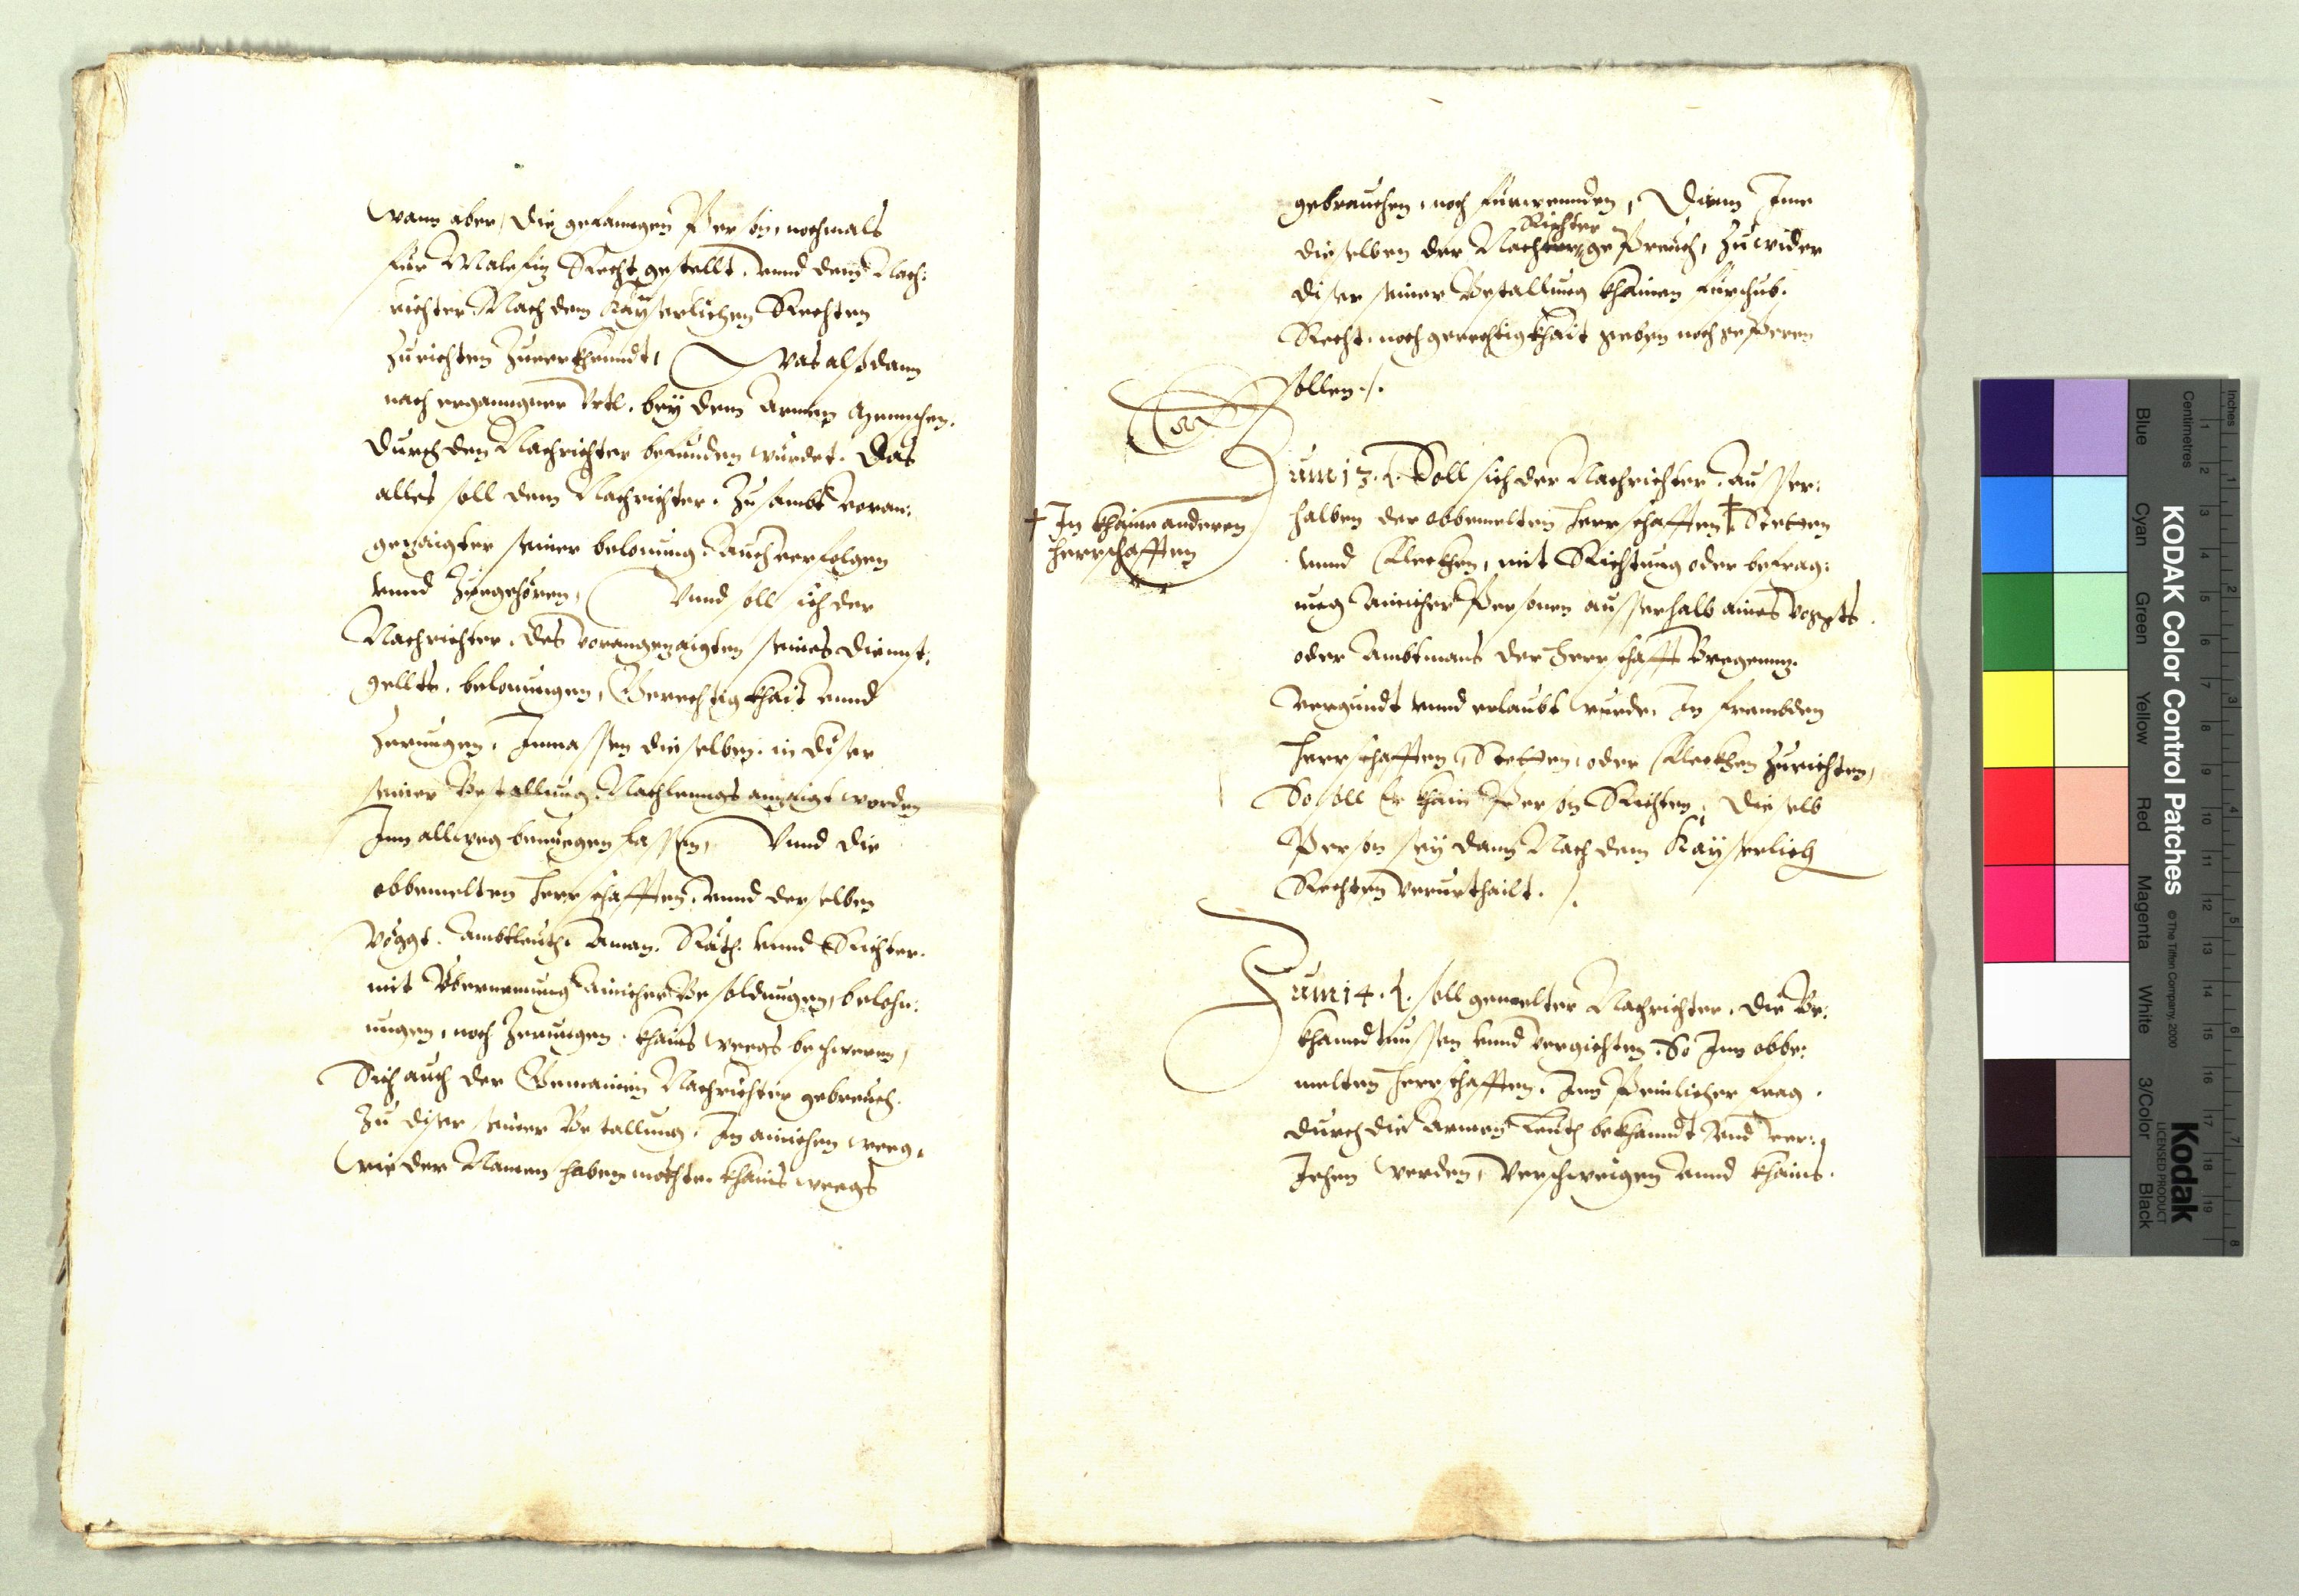 Wann aber, die gefanngen Person, nochmals
für Malefiz Recht gestellt, vnnd dem Nach:
richter Nach dem Kayserlichen Rechten
Zurichten Zuerkhenndt, Was alßdann
nach ergangner Vrtl. bey dem armen Mennschen,
durch den Nachrichter befunden wurdet. Das
alles soll dem Nachrichter, Zusambt voran:
gezaigter seiner belonung, auch verfolgen
vnnd Zuegehören, Vnnd soll sich der
Nachrichter, des vorangezaigten seines dienst:
gellts, belonungen, Gerechtigkhait vnnd
Zerungen, Inmassen dieselben, in diser
seiner Bestallung, Nachlenngs anzaigt worden
Inn allweg benüegen lassen, Vnnd die
obbemelten Herrschafften, vnnd derselben
Vöggt, Ambtleuth, Aman, Räth, vnnd Richter,
mit Übernemung ainicher Besoldungen, belohn:
ungen, noch Zerungen, khains weegs beschweren,
Sich auch der Gemainen Nachrichter gebreuch,
Zu diser seiner Bestallung, In ainichen weeg,
wie der Namen haben möchte, khains weegs
gebrauchen, noch fürwennden, Dienn Ime
Richter
dieselben der Nachter gepreuch, Zuwider
diser seiner Bestallung khainen fürschub,
Recht, noch gerechtigkhait geben noch geperen
sollen ./.
Zum 13. Soll sich der Nachrichter, Ausser:
halben der obbemelten Herrschafften † Stetten
† In khaine anderen
Herrschafften
vnnd Fleckhen, mit Richtung oder befrag:
ung ainicher Personen ausserhalb aines Vogts
oder Ambtmans der Herrschafft Bregennz
vergundt vnnd erlaubt wurde, In frembden
Herrschafften, Stetten, oder Fleckhen Zurichten,
So soll Er khain Person Richten, Dieselb
Person sey dann Nach dem Kayserlich
Rechten verurthailt ./.
Zum 14. soll gemelter Nachrichter, die Be:
khanndtnussen vnnd vergichten, So Inn obbe:
melten Herrschafften, Inn Peinlicher frag,
durch die Armen Leuth bekhanndt vnd ver:
Jehen werden, Verschweigen vnnd khains